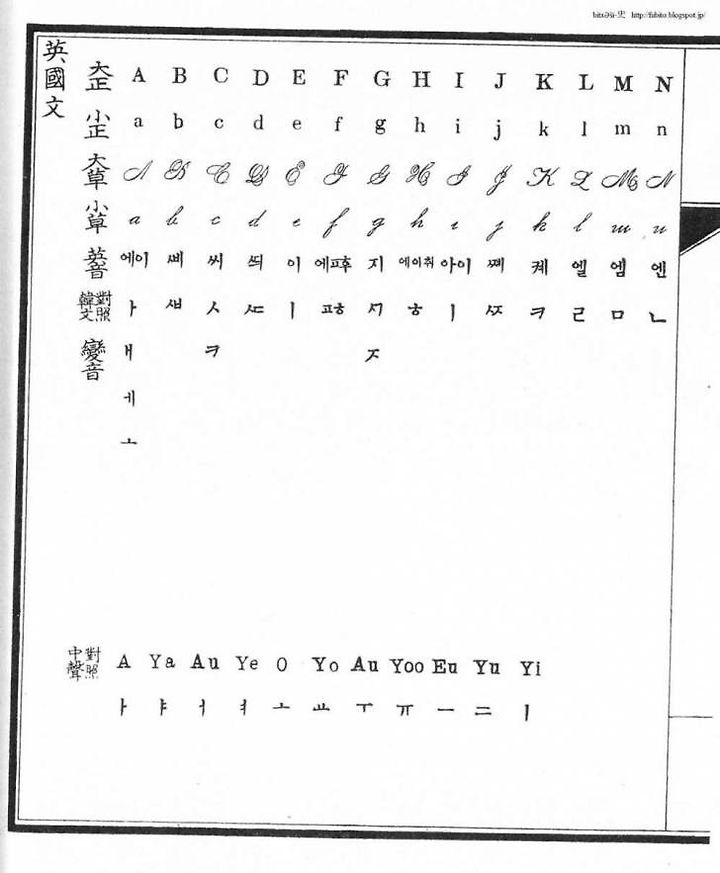 http://fubito.blogspot.jp/
英國文
大正 A B C D E F G H I J K L M N
小正 a b c d e f g h i j k l m n
大草 A B C D E F G H I J K L M N
小草 a b c d e f g h i j k l m n
英音 에이 씨 이 지 에이취 아이 졔 켸 엘 엠 엔
韓文對照 ㅏ ㅅ ㅼ ㅣ ㅎ ㅣ ㅾ ㅋ ㄹ ㅁ ㄴ
變音 ㅐ ㅋ ㅈ
ㅔ
ㅗ
中聲對照 A Ya Au Ye O Yo Au Yoo Eu Yu Yi
ㅏ ㅑ ㅓ ㅕ ㅗ ㅛ ㅜ ㅠ ㅡ ᆖ ㅣ